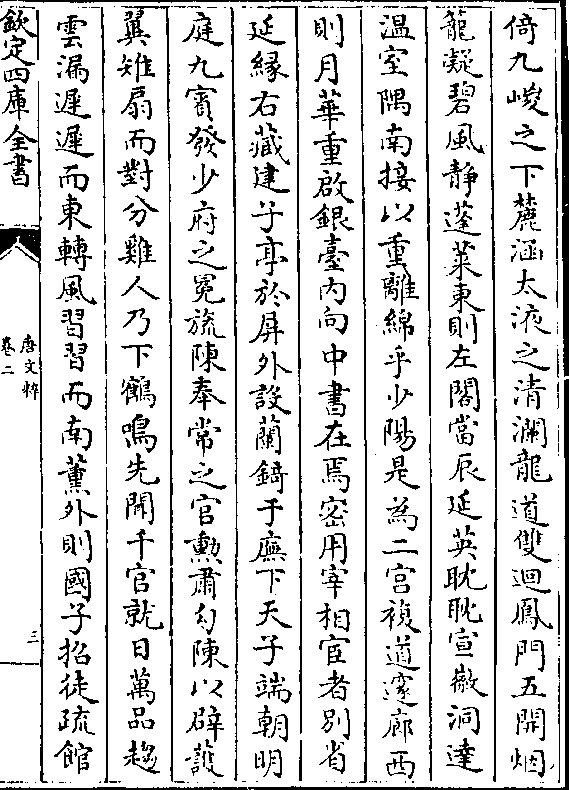 倚九嵕之下麓涵太液之清瀾龍道雙迴鳳門五開烟
籠凝碧風静蓬萊東則左閤當辰延英耽耽宣徽洞達
温室隅南接以重離綿乎少陽是為二宫複道䆳廊西
則月華重啟銀臺内向中書在焉宻用宰相宦者别省
延緣右藏建子亭於屏外設蘭錡于廡下天子端朝明
庭九賓發少府之冕旒陳奉常之官勲肅勾陳以辟護
翼雉扇而對分雞人乃下鶴鳴先聞千官就日萬品趨
雲漏遲遲而東轉風習習而南薫外則國子招徒疏館
欽定四庫全書
唐文粹
卷二
三